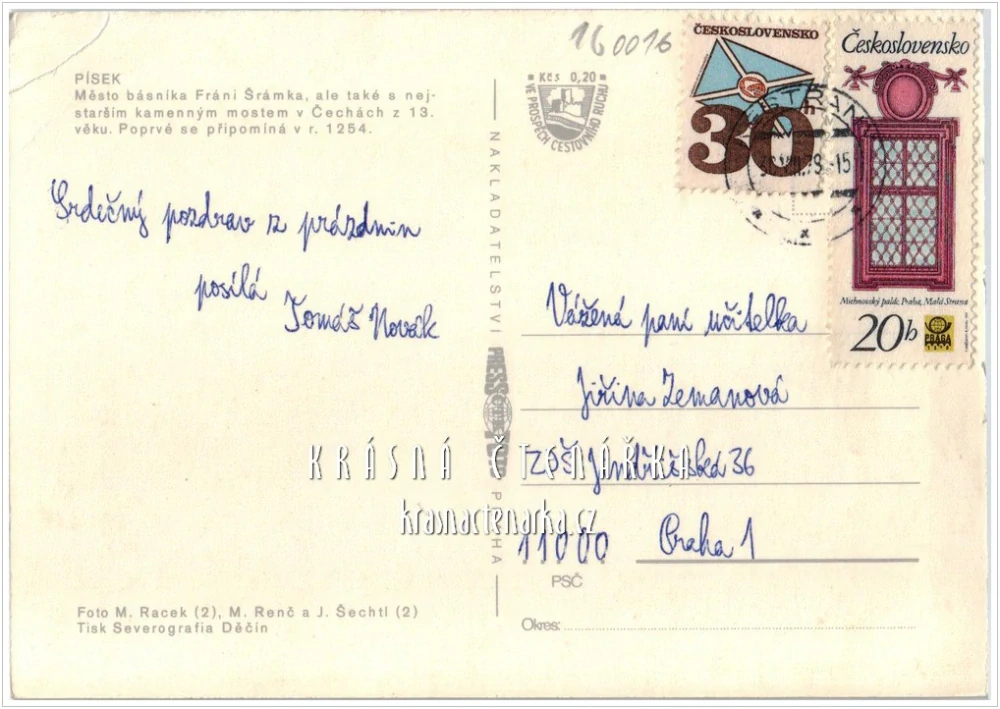 160016
PÍSEK
Město básníka Fráni Šrámka, ale také s nej-
starším kamenným mostem v Čechách z 13.
věku. Poprvé se připomíná v r. 1254.
Kčs 0,20
VE PROSPĚCH CESTOVNÍHO RUCHU
ČESKOSLOVENSKO
30
Československo
Michnovský palác, Praha, Malá Strana
20h
PRAGA
Srdečný pozdrav z prázdnin
posílá
Tomáš Novák
NAKLADATELSTVÍ
PRESSFOTO
PRAHA
Vážená paní učitelka
Jiřina Zemanová
ZDŠ Jindřišská 36
11000 Praha 1
PSČ
Okres:
KRÁSNÁ ČTENÁŘKA
krasnactenarka.cz
Foto M. Racek (2), M. Renč a J. Šechtl (2)
Tisk Severografia Děčín